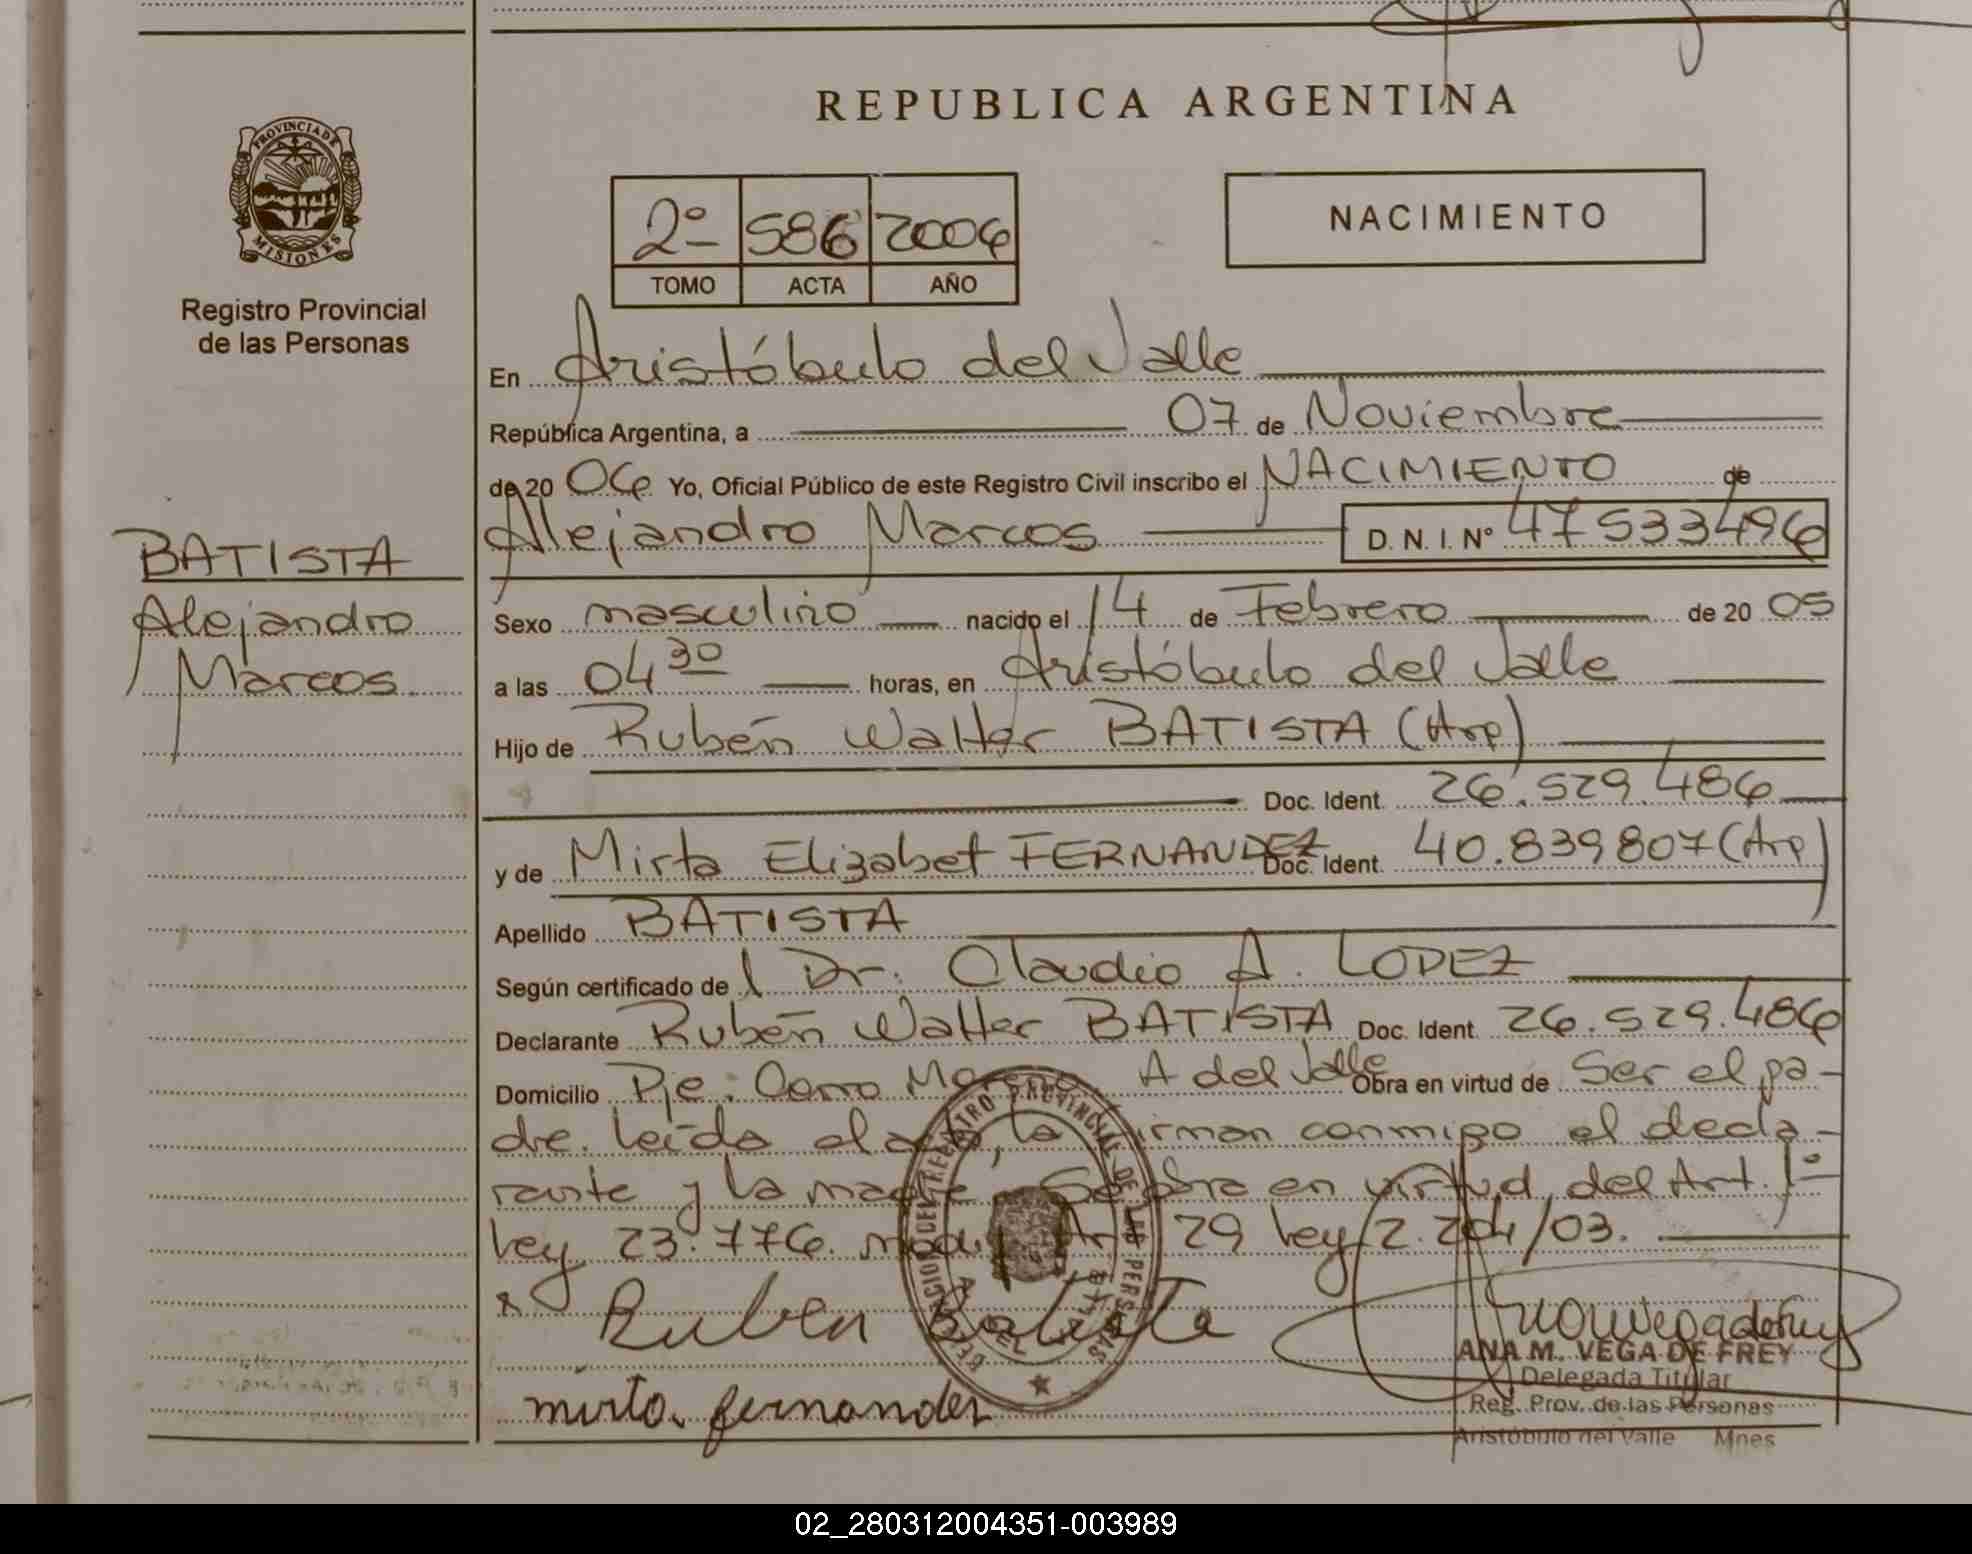 REPUBLICA ARGENTINA
PROVINCIA DE
MISIONES
Registro Provincial
de las Personas
2º 586 2006
TOMO ACTA AÑO
NACIMIENTO
En Aristóbulo del Valle
República Argentina, a 07 de Noviembre
de 20 06 Yo, Oficial Público de este Registro Civil inscribo el NACIMIENTO de
BATISTA
Alejandro
Marcos
Alejandro Marcos D.N.I. Nº 47533496
Sexo masculino nacido el 14 de Febrero de 20 05
a las 04 30 horas, en Aristóbulo del Valle
Hijo de Rubén Walter BATISTA (Arg)
Doc. Ident. 26.529.486
y de Mirta Elizabet FERNANDEZ Doc. Ident. 40.839807 (Arg)
Apellido BATISTA
Según certificado de l Dr. Claudio A. LOPEZ
Declarante Rubén Walter BATISTA Doc. Ident. 26.529.486
Domicilio Pje: Cerro Moreno A del Valle Obra en virtud de Ser el pa-
dre. leída el acta, la firman conmigo el decla-
rante y la madre. Se obra en virtud del Art. 1º
ley 23.776. modif Art 29 ley 2.204/03.
x Ruben Batista
mirta fernandez
ANA M. VEGA DE FREY
Delegada Titular
Reg. Prov. de las Personas
Aristóbulo del Valle Mnes
02_280312004351-003989